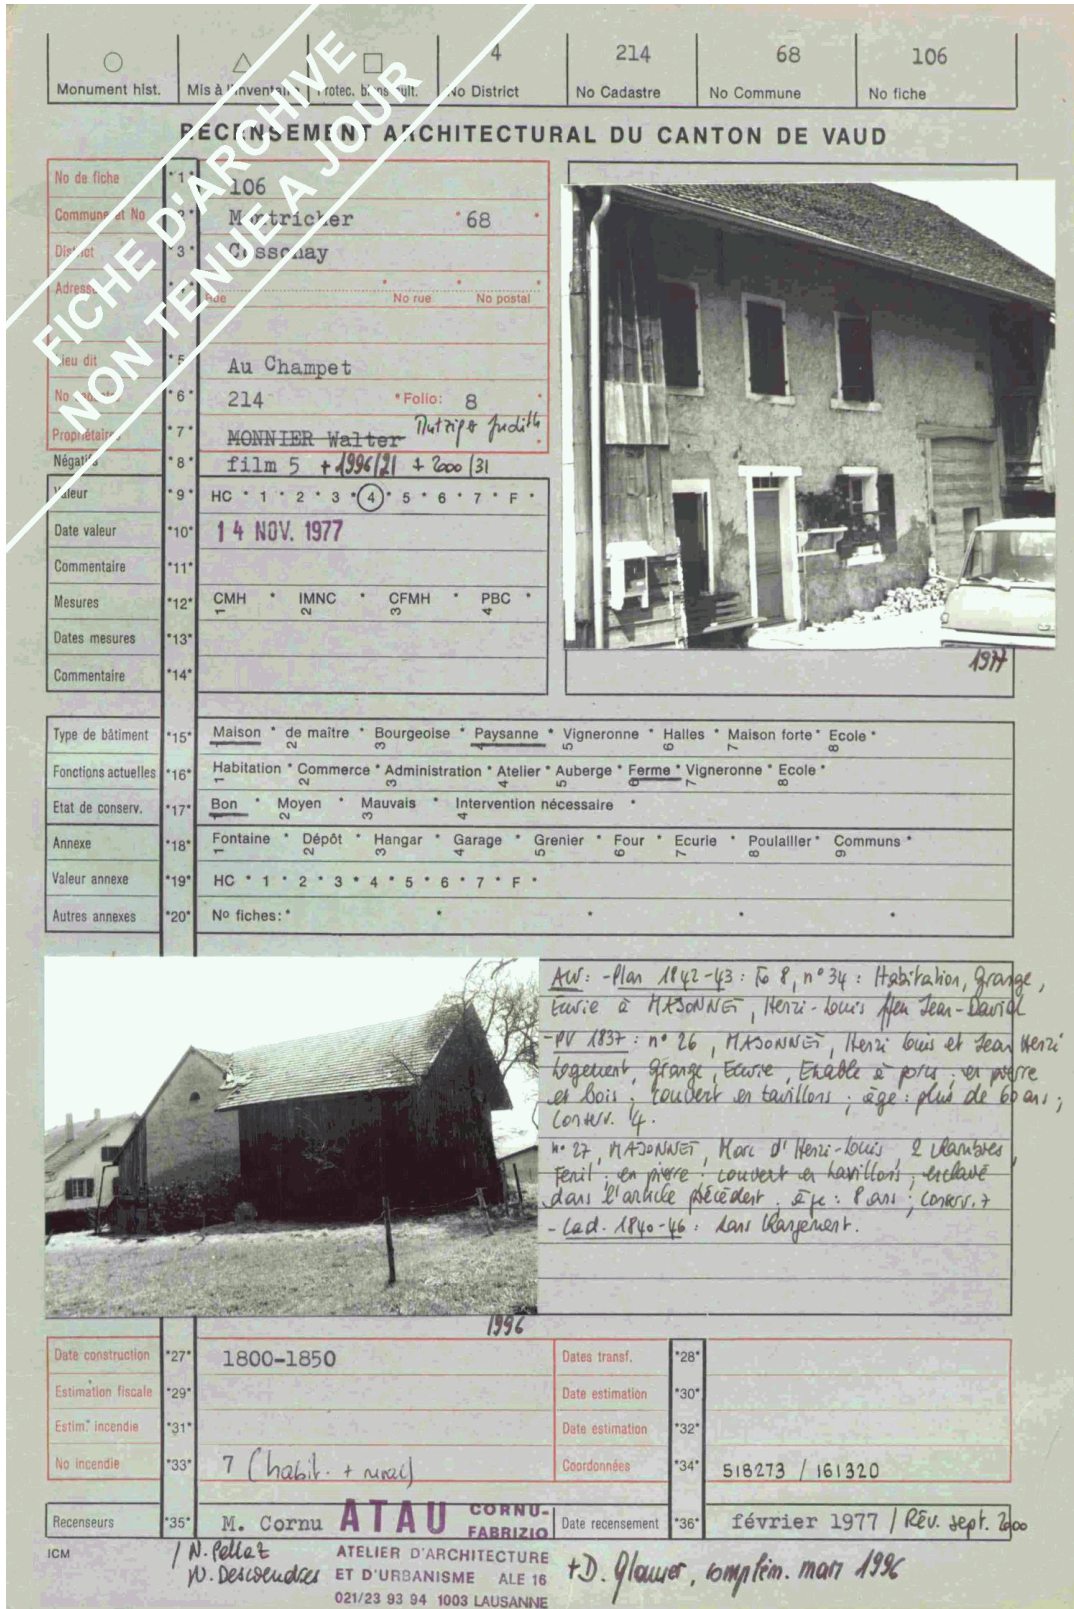 4 214 68 106
Monument hist. Mis à l'inventaire Protec. biens cult. No District No Cadastre No Commune No fiche
RECENSEMENT ARCHITECTURAL DU CANTON DE VAUD
FICHE D'ARCHIVE
NON TENUE A JOUR
No de fiche *1* 106
Commune et No *2* Montricher * 68 *
District *3* Cossonay
Adresse
Rue No rue No postal
Lieu dit *5* Au Champet
*6* 214 * Folio: 8
Propriétaire *7* MONNIER Walter Judith
Négatifs *8* film 5 + 1996/21 + 2000/31
Valeur *9* HC * 1 * 2 * 3 * 4 * 5 * 6 * 7 * F *
Date valeur *10* 14 NOV. 1977
Commentaire *11*
Mesures *12* CMH * IMNC * CFMH * PBC *
1 2 3 4
Dates mesures *13*
Commentaire *14*
1977
Type de bâtiment *15* Maison * de maître * Bourgeoise * Paysanne * Vigneronne * Halles * Maison forte * Ecole *
2 3 4 5 6 7 8
Fonctions actuelles *16* Habitation * Commerce * Administration * Atelier * Auberge * Ferme * Vigneronne * Ecole *
1 2 3 4 5 6 7 8
Etat de conserv. *17* Bon * Moyen * Mauvais * Intervention nécessaire *
1 2 3 4
Annexe *18* Fontaine * Dépôt * Hangar * Garage * Grenier * Four * Ecurie * Poulailler * Communs *
1 2 3 4 5 6 7 8 9
Valeur annexe *19* HC * 1 * 2 * 3 * 4 * 5 * 6 * 7 * F *
Autres annexes *20* No fiches: * * * * *
AW: - Plan 1842-43 : Fo 8, n° 34 : Habitation, Grange,
Ecurie à MAJONNET, Henri-Louis ffeu Jean-David
- PV 1837 : n° 26, MAJONNET, Henri Louis et Jean Henri
Logement, Grange, Ecurie, Etable à porcs, en pierre
et bois ; couvert en tavillons ; âge : plus de 60 ans ;
conserv. 4.
n° 27, MAJONNET, Marc d'Henri-Louis, 2 chambres,
Fenil ; en pierre ; couvert en tavillons ; enclavé
dans l'article précédent ; âge : 8 ans ; conserv. 7
- Cad. 1840-46 : sans changement.
1996
Date construction *27* 1800-1850 Dates transf. *28*
Estimation fiscale *29* Date estimation *30*
Estim. incendie *31* Date estimation *32*
No incendie *33* 7 (habit. + rural) Coordonnées *34* 518273 / 161320
Recenseurs *35* M. Cornu ATAU CORNU-FABRIZIO Date recensement *36* février 1977 / Rév. sept. 2000
ICM / N. Pellaz ATELIER D'ARCHITECTURE + D. Glauser, complém. mars 1996
N. Desvoendres ET D'URBANISME ALE 16
021/23 93 94 1003 LAUSANNE